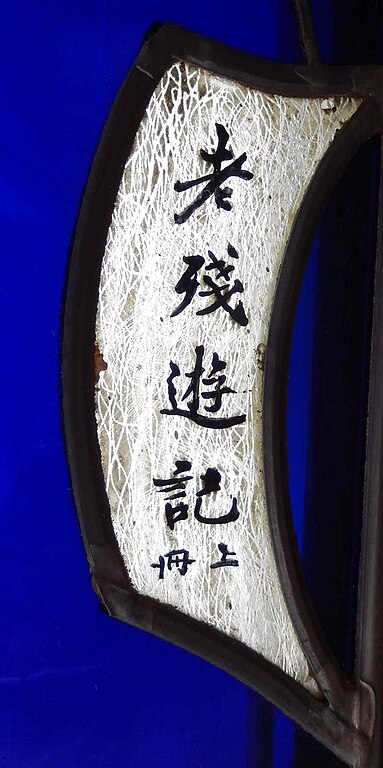 老殘遊記
上冊